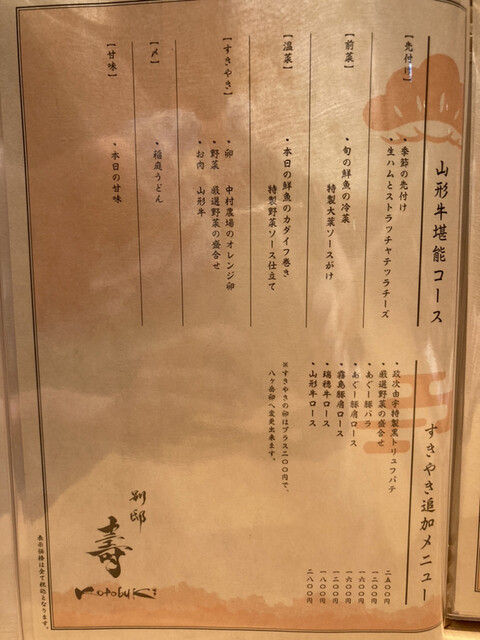 山形牛堪能コース
【先付け】
・季節の先付け
・生ハムとストラッチャテッラチーズ
【前菜】
・旬の鮮魚の冷菜
特製大葉ソースがけ
【温菜】
・本日の鮮魚のカダイフ巻き
特製野菜ソース仕立て
【すきやき】
・卵　中村農場のオレンジ卵
・野菜　厳選野菜の盛合せ
・お肉　山形牛
【〆】
・稲庭うどん
【甘味】
・本日の甘味
すきやき追加メニュー
・政次由宇特製黒トリュフパテ 二五〇〇円
・厳選野菜の盛合せ 一二〇〇円
・あぐー豚バラ 一六〇〇円
・あぐー豚肩ロース 一六〇〇円
・霧島豚肩ロース 一二〇〇円
・瑞穂牛ロース 一八〇〇円
・山形牛ロース 二八〇〇円
※すきやきの卵はプラス二〇〇円で、
八ヶ岳卵へ変更出来ます。
別邸
壽
KOTOBUKI
表示価格は全て税込となります。